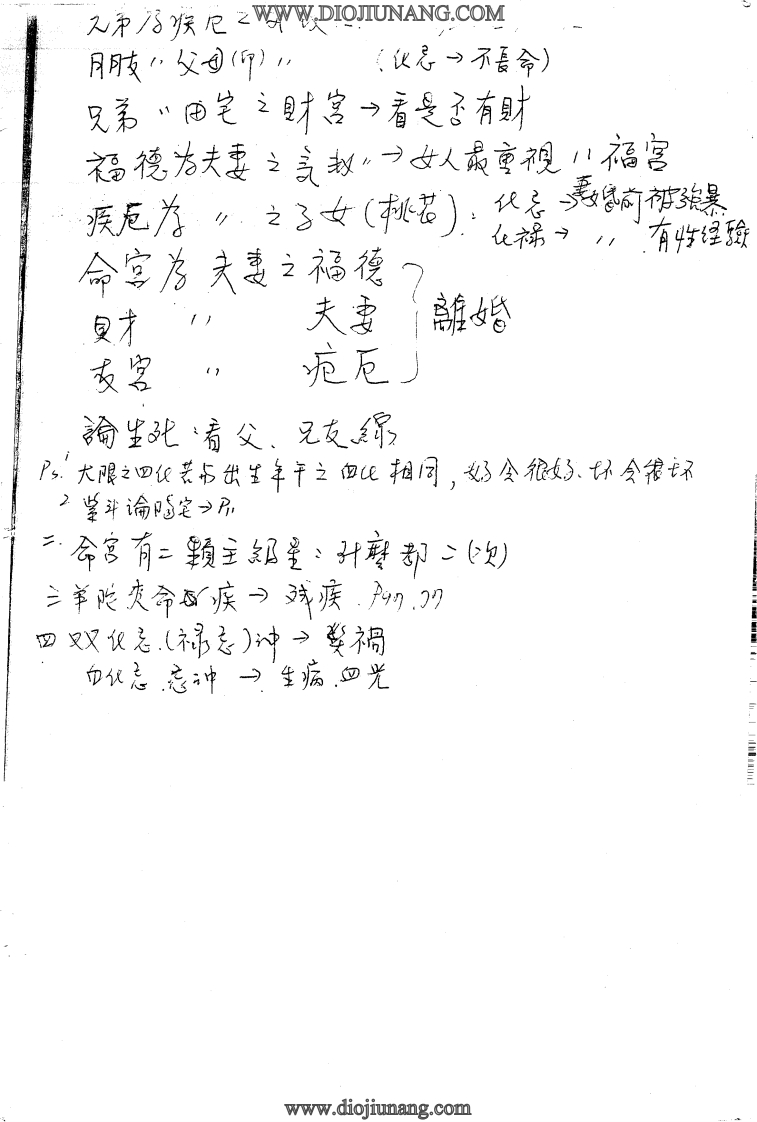 WWW.DIOJIUNANG.COM
兄弟為疾厄之
朋友〃父母(卯)〃 (化忌→不長命)
兄弟〃田宅之財宮→看是否有財
福德為夫妻之氣數〃→女人最重視〃福宮
疾厄為〃之子女(桃花):化忌→妻婚前被強暴
化祿→〃有性経驗
命宮為夫妻之福德
財〃夫妻
友宮〃疾厄
離婚
論生死:看父、兄友線
Ps.1 大限之四化若与出生年干之四化相同,好会很好、坏会很坏
2 紫斗論陽宅→P11
二.命宮有二顆主星:什麼都二(次)
三羊陀夾命疾→残疾.
四双化忌.(祿忌)冲→禍
化忌.忌冲→生病.血光
www.diojiunang.com